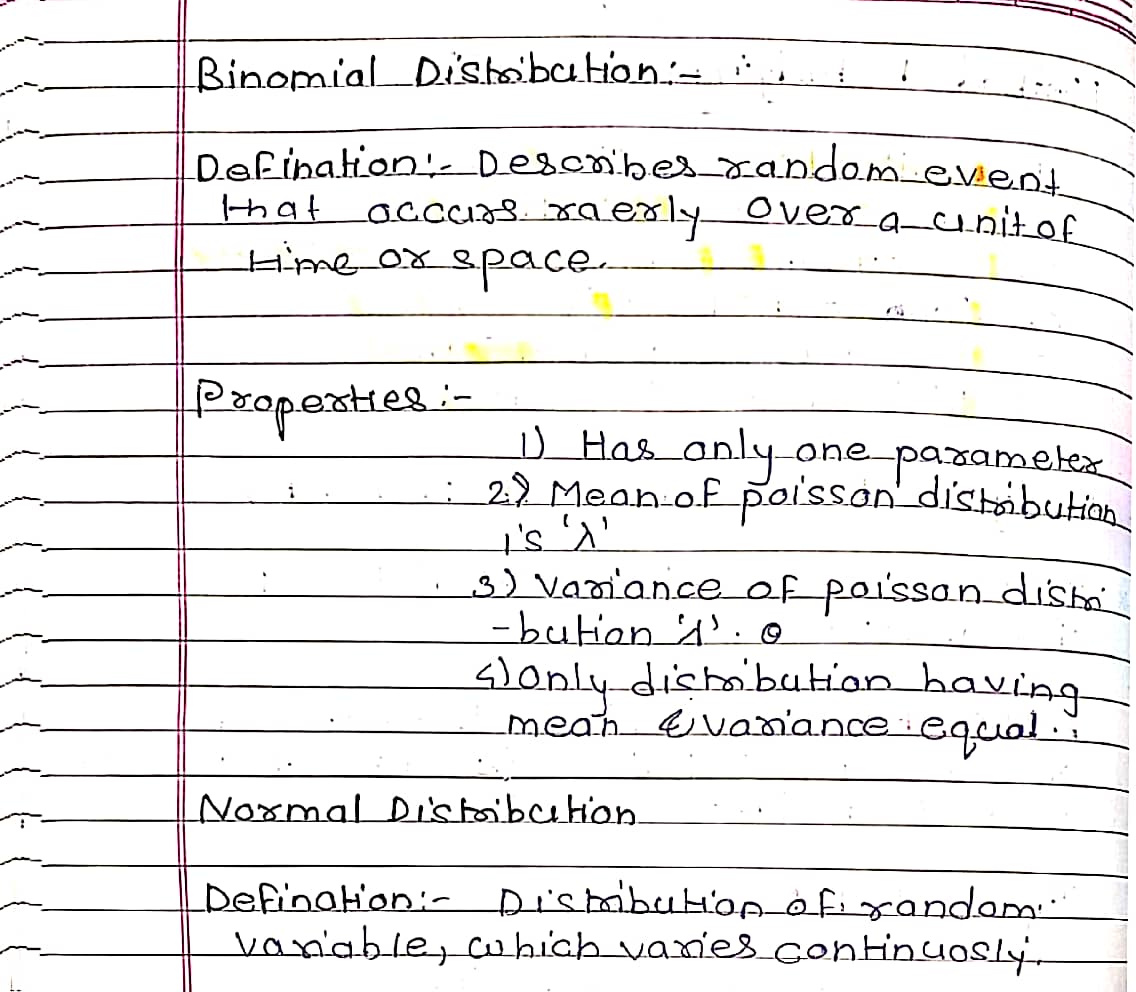 Binomial Distribution :-
Defination :- Describes random event
that occurs raerly over a unit of
time or space.
Properties :-
1) Has only one parameter
2) Mean of poisson distribution
is 'λ'
3) Variance of poisson distri
-bution 'λ'.
4) Only distribution having
mean & variance equal.
Normal Distribution
Defination :- Distribution of random
variable, which varies continuosly.